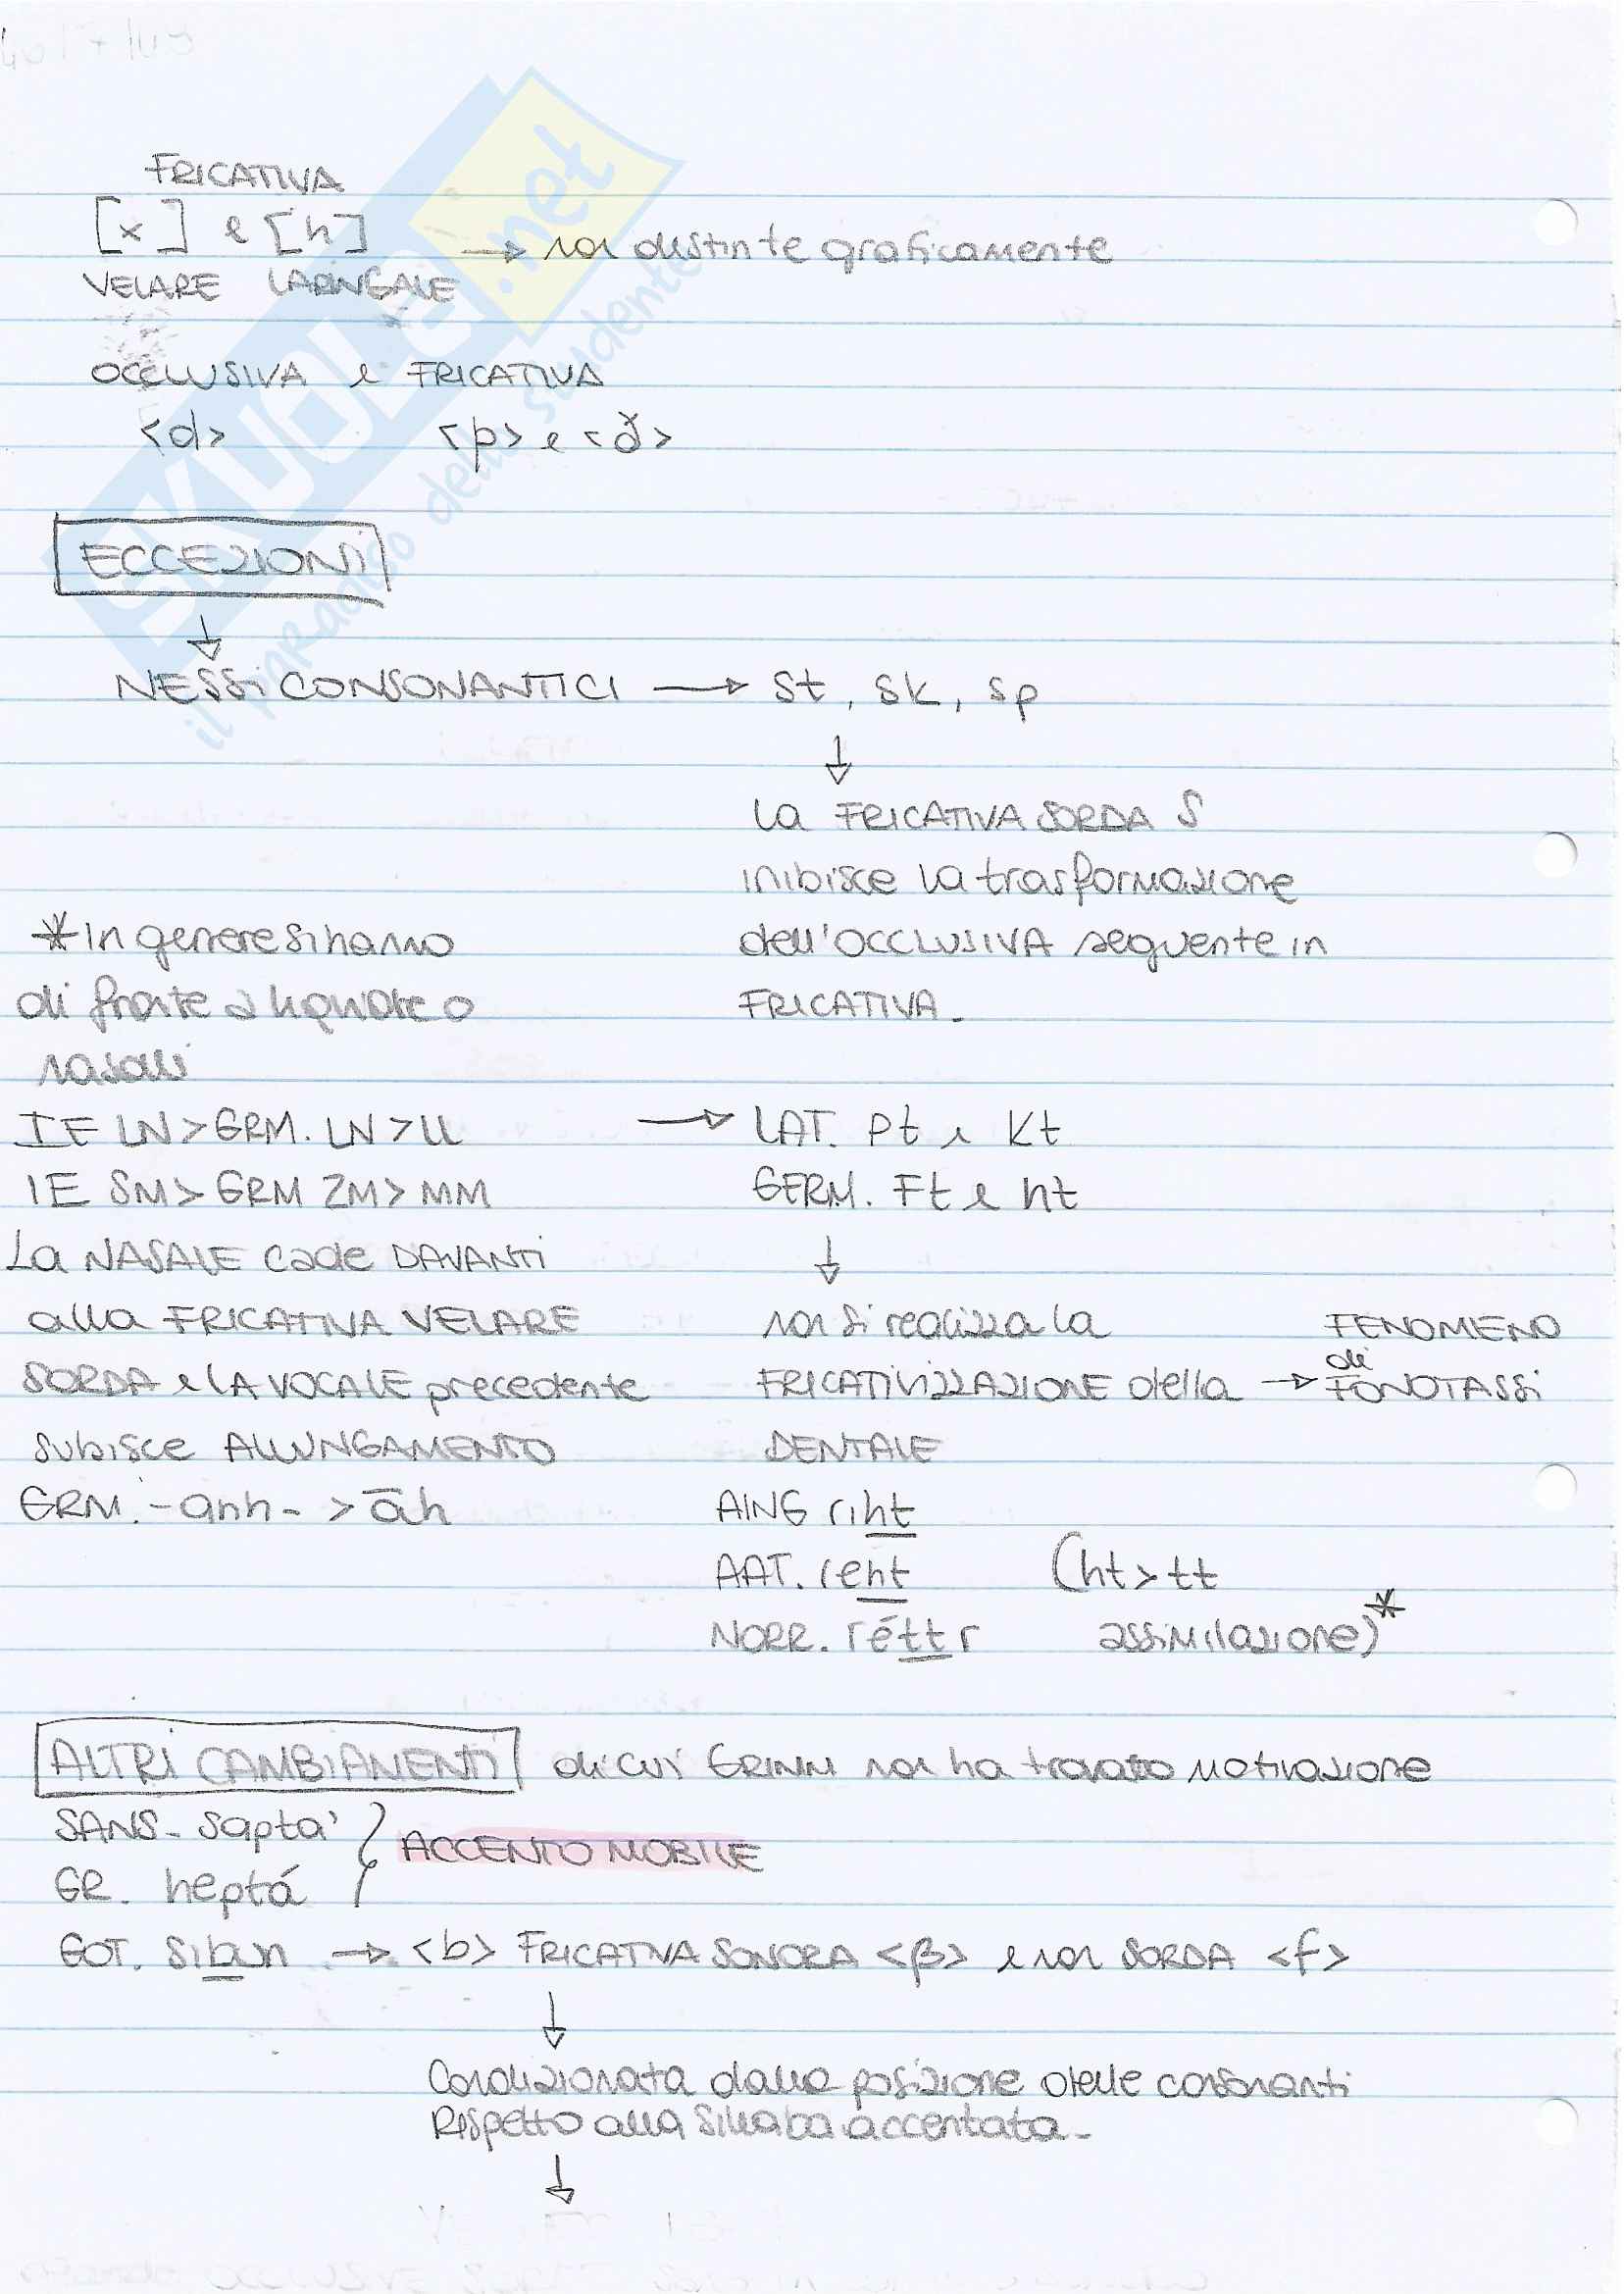 FRICATIVA
[x] e [h] → non distinte graficamente
VELARE LARINGALE
OCCLUSIVA e FRICATIVA
<d> <þ> e <ð>
ECCEZIONI
↓
NESSI CONSONANTICI → st, sk, sp
↓
la FRICATIVA SORDA S
inibisce la trasformazione
dell'OCCLUSIVA seguente in
FRICATIVA.
*In genere si hanno
di fronte a liquide o
nasali
IE LN > GRM. LN > LL
IE SM > GRM ZM > MM
La NASALE cade DAVANTI
alla FRICATIVA VELARE
SORDA e LA VOCALE precedente
subisce ALLUNGAMENTO
GRM. -anh- > āh
→ LAT. pt e kt
GERM. Ft e ht
↓
non si realizza la
FRICATIVIZZAZIONE della → FENOMENO di FONOTASSI
DENTALE
AING riht
AAT. reht (ht > tt
NORR. réttr assimilazione)*
ALTRI CAMBIAMENTI di cui GRIMM non ha trovato motivazione
SANS. sapta'
GR. heptá
ACCENTO MOBILE
GOT. sibun → <b> FRICATIVA SONORA <β> e non SORDA <f>
↓
Condizionata dalla posizione delle consonanti
Rispetto alla sillaba accentata.
↓
SKUOLA.net
il paradiso dello studente